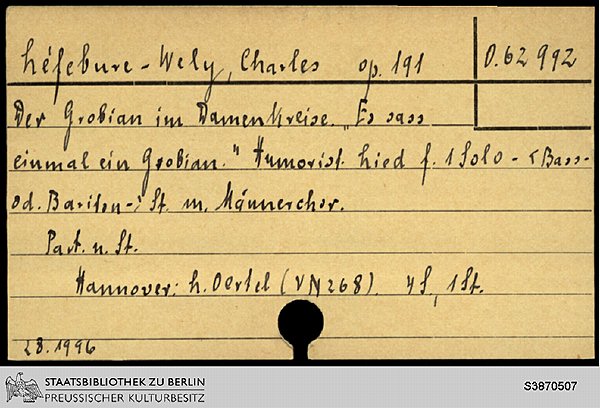 Léfebure-Wely, Charles op. 191 O.62 992
Der Grobian im Damenkreise. „Es sass
einmal ein Grobian." Humorist. Lied f. 1 Solo-<Bass-
od. Bariton-> St. m. Männerchor.
Part. u. St.
Hannover: L. Oertel (VN 268). 4 S, 1 St.
28.1996
STAATSBIBLIOTHEK ZU BERLIN
PREUSSISCHER KULTURBESITZ
S3870507